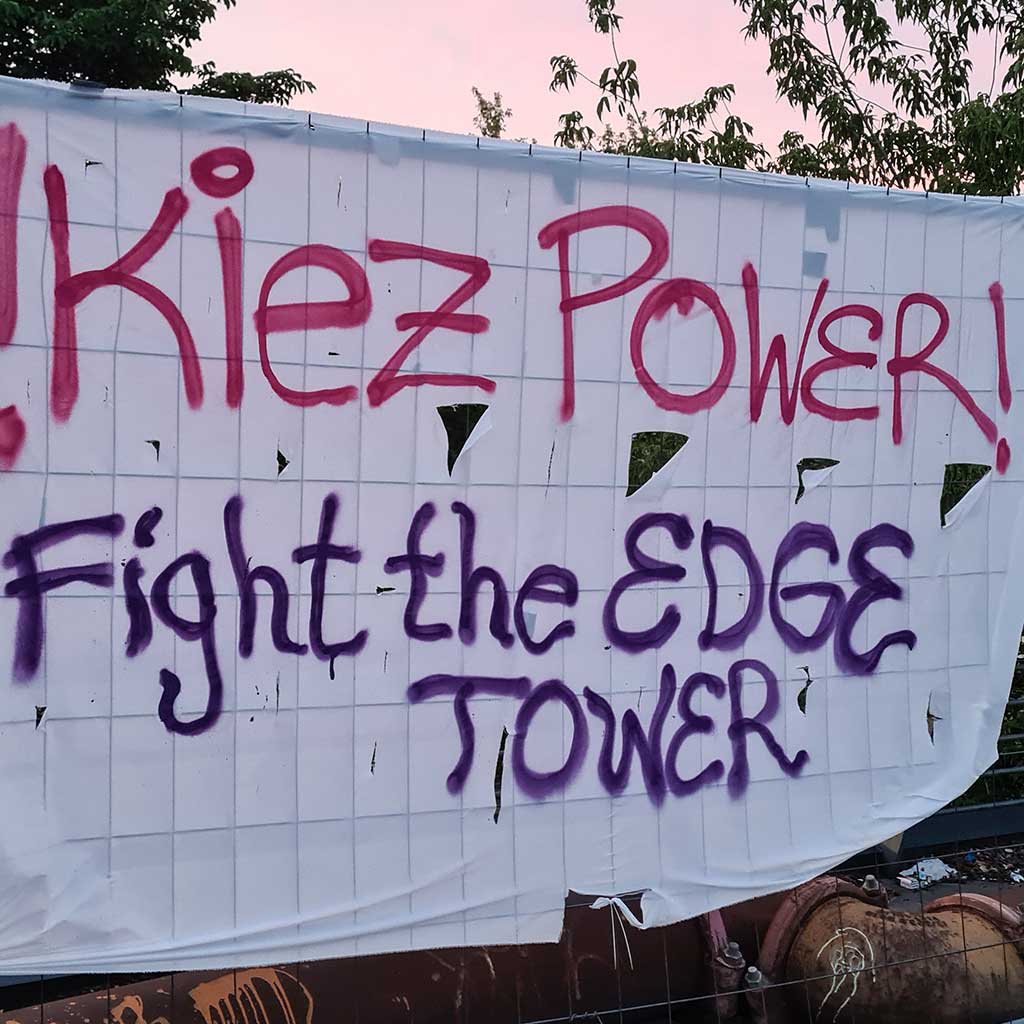 !Kiez POWER!
Fight the EDGE
TOWER